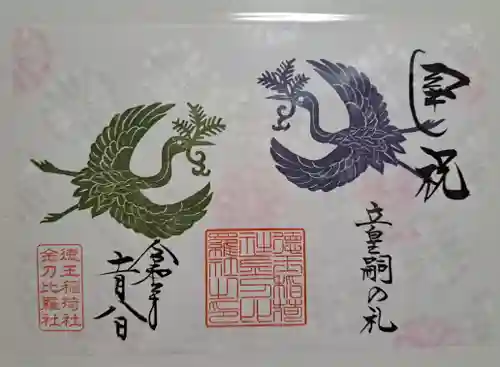 奉祝
立皇嗣の礼
徳王稲荷
社金刀比
羅社之印
令和二年
十一月八日
徳王稲荷社
金刀比羅社